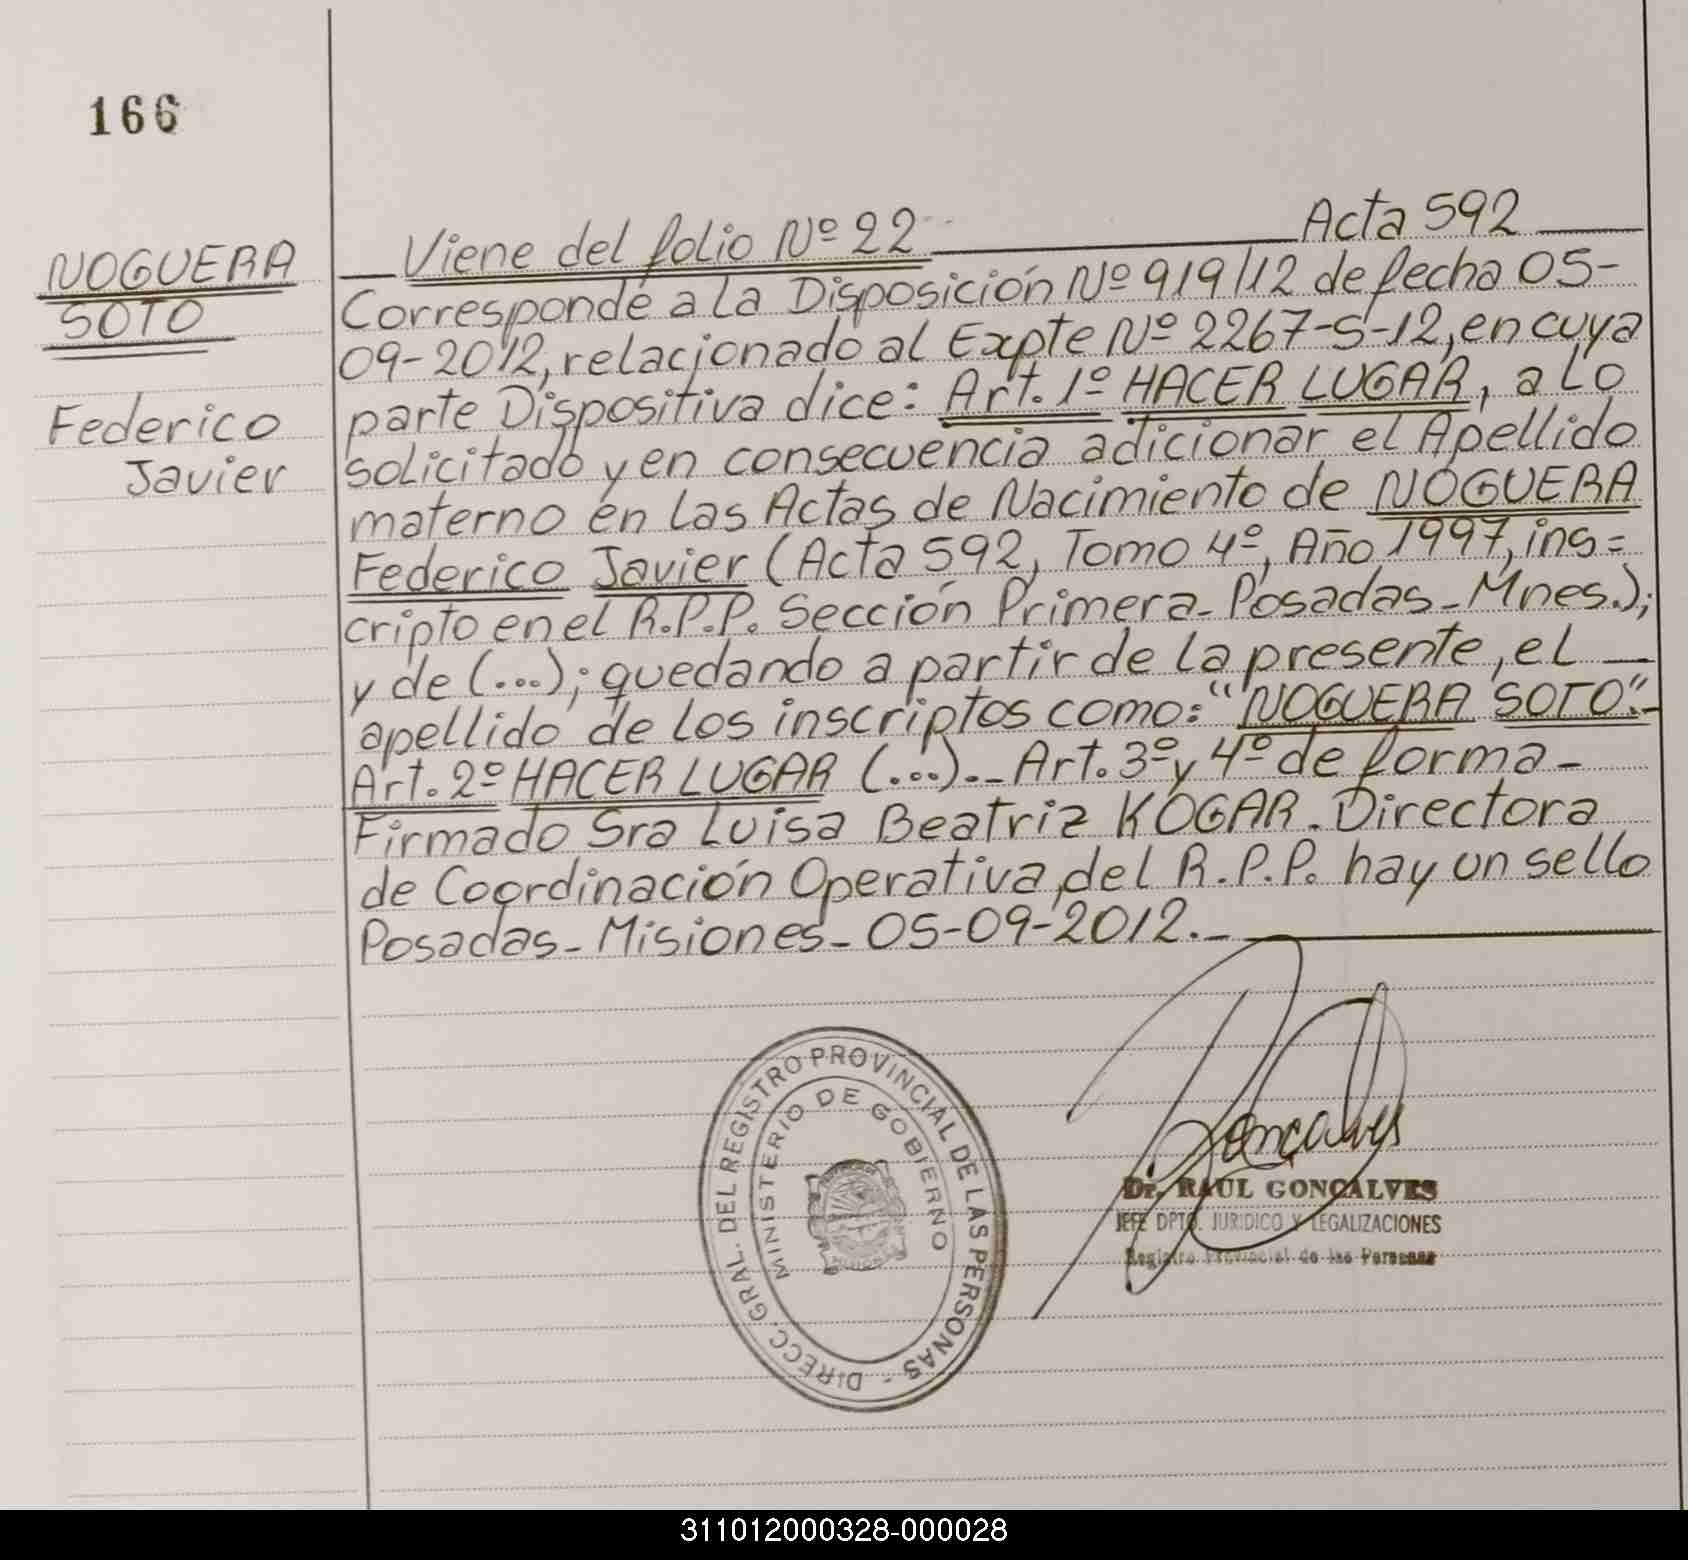 166
NOGUERA
SOTO
Federico
Javier
Viene del folio Nº 22 Acta 592
Corresponde a la Disposición Nº 919/12 de fecha 05-
09-2012, relacionado al Expte Nº 2267-S-12, en cuya
parte Dispositiva dice: Art. 1º HACER LUGAR, a lo
solicitado y en consecuencia adicionar el Apellido
materno en las Actas de Nacimiento de NOGUERA
Federico Javier (Acta 592, Tomo 4º, Año 1997, ins=
cripto en el R.P.P. Sección Primera-Posadas-Mnes.);
y de (...); quedando a partir de la presente, el
apellido de los inscriptos como: "NOGUERA SOTO".-
Art. 2º HACER LUGAR (...).- Art. 3º y 4º de forma-
Firmado Sra Luisa Beatriz KOGAR. Directora
de Coordinación Operativa, del R.P.P. hay un sello
Posadas-Misiones-05-09-2012.-
DIRECC. GRAL. DEL REGISTRO PROVINCIAL DE LAS PERSONAS -
MINISTERIO DE GOBIERNO
Goncalves
Dr. RAUL GONCALVES
JEFE DPTO. JURIDICO Y LEGALIZACIONES
Registro Provincial de las Personas
311012000328-000028